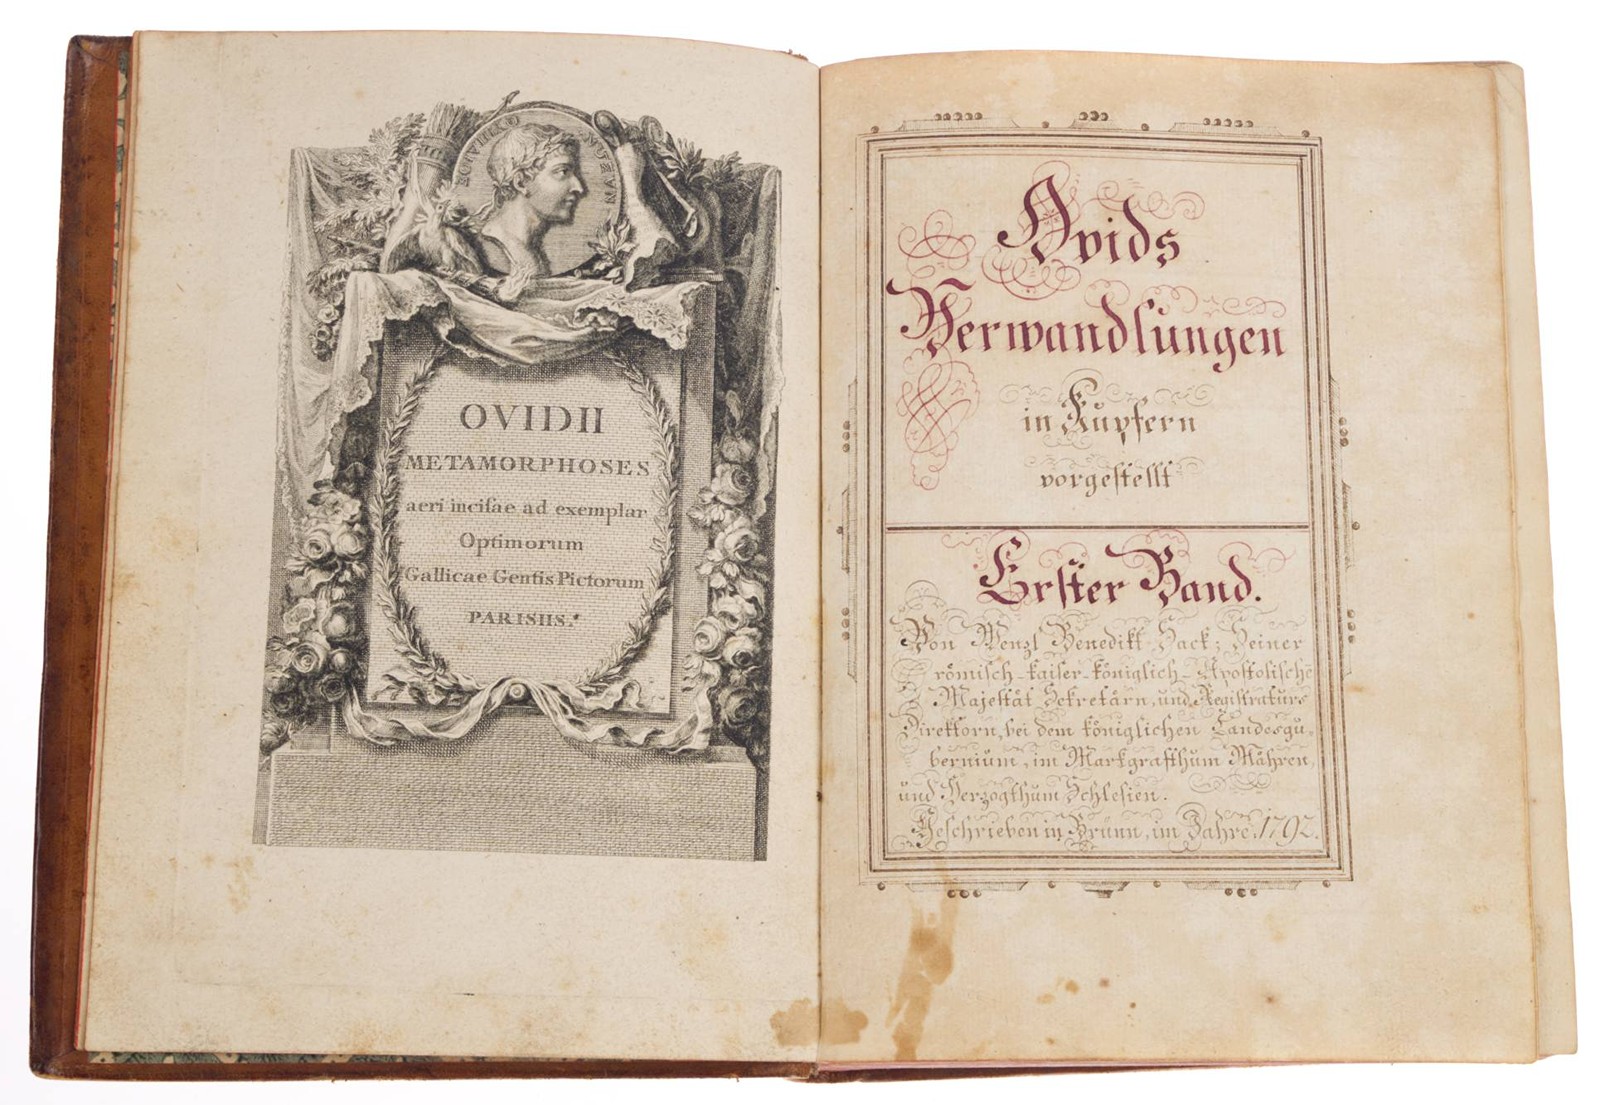 P. OVIDIUS NASO
OVIDII
METAMORPHOSES
aeri incisae ad exemplar
Optimorum
Gallicae Gentis Pictorum
PARISIIS.
Ovids
Verwandlungen
in Kupfern
vorgestellt
Erster Band.
Von Wenzl Benedikt Hack; Seiner
römisch-kaiser-königlich-Apostolische
Majestät Sekretärn, und Registraturs
Direktorn, bei dem königlichen Landesgu-
bernium, im Markgrafthum Mähren,
und Herzogthum Schlesien.
Geschrieben in Brünn, im Jahre. 1792.